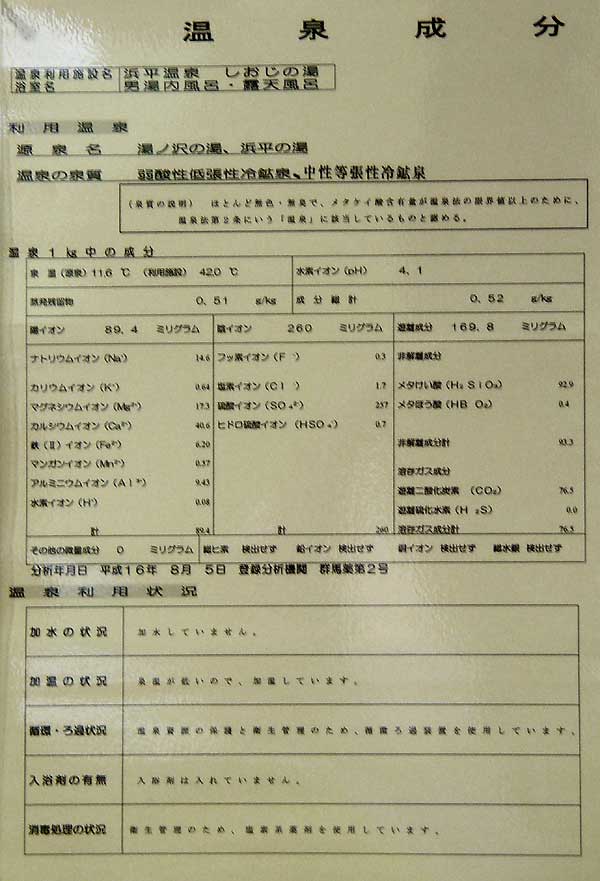 温泉成分
温泉利用施設名 浜平温泉 しおじの湯
浴室名 男湯内風呂・露天風呂
利用温泉
源泉名 湯ノ沢の湯、浜平の湯
温泉の泉質 弱酸性低張性冷鉱泉、中性等張性冷鉱泉
(泉質の説明) ほとんど無色・無臭で、メタケイ酸含有量が温泉法の限界値以上のために、
温泉法第2条にいう「温泉」に該当しているものと認める。
温泉1kg中の成分
泉温(源泉)11.6 ℃ (利用施設) 42.0 ℃ 水素イオン(pH) 4.1
蒸発残留物 0.51 g/kg 成分総計 0.52 g/kg
陽イオン 89.4 ミリグラム 陰イオン 260 ミリグラム 遊離成分 169.8 ミリグラム
ナトリウムイオン(Na⁺) 14.6 フッ素イオン(F⁻) 0.3 非解離成分
カリウムイオン(K⁺) 0.64 塩素イオン(Cl⁻) 1.7 メタけい酸(H₂SiO₃) 92.9
マグネシウムイオン(Mg²⁺) 17.3 硫酸イオン(SO₄²⁻) 257 メタほう酸(HBO₂) 0.4
カルシウムイオン(Ca²⁺) 40.6 ヒドロ硫酸イオン(HSO₄) 0.7
鉄(Ⅱ)イオン(Fe²⁺) 6.20 非解離成分計 93.3
マンガンイオン(Mn²⁺) 0.57 溶存ガス成分
アルミニウムイオン(Al³⁺) 9.43 遊離二酸化炭素 (CO₂) 76.5
水素イオン(H⁺) 0.08 遊離硫化水素(H₂S) 0.0
計 89.4 計 260 溶存ガス成分計 76.5
その他の微量成分 0 ミリグラム 総ヒ素 検出せず 鉛イオン 検出せず 銅イオン 検出せず 総水銀 検出せず
分析年月日 平成16年 8月 5日 登録分析機関 群馬薬第2号
温泉利用状況
加水の状況 加水していません。
加温の状況 泉温が低いので、加温しています。
循環・ろ過状況 温泉資源の保護と衛生管理のため、循環ろ過装置を使用しています。
入浴剤の有無 入浴剤は入れていません。
消毒処理の状況 衛生管理のため、塩素系薬剤を使用しています。